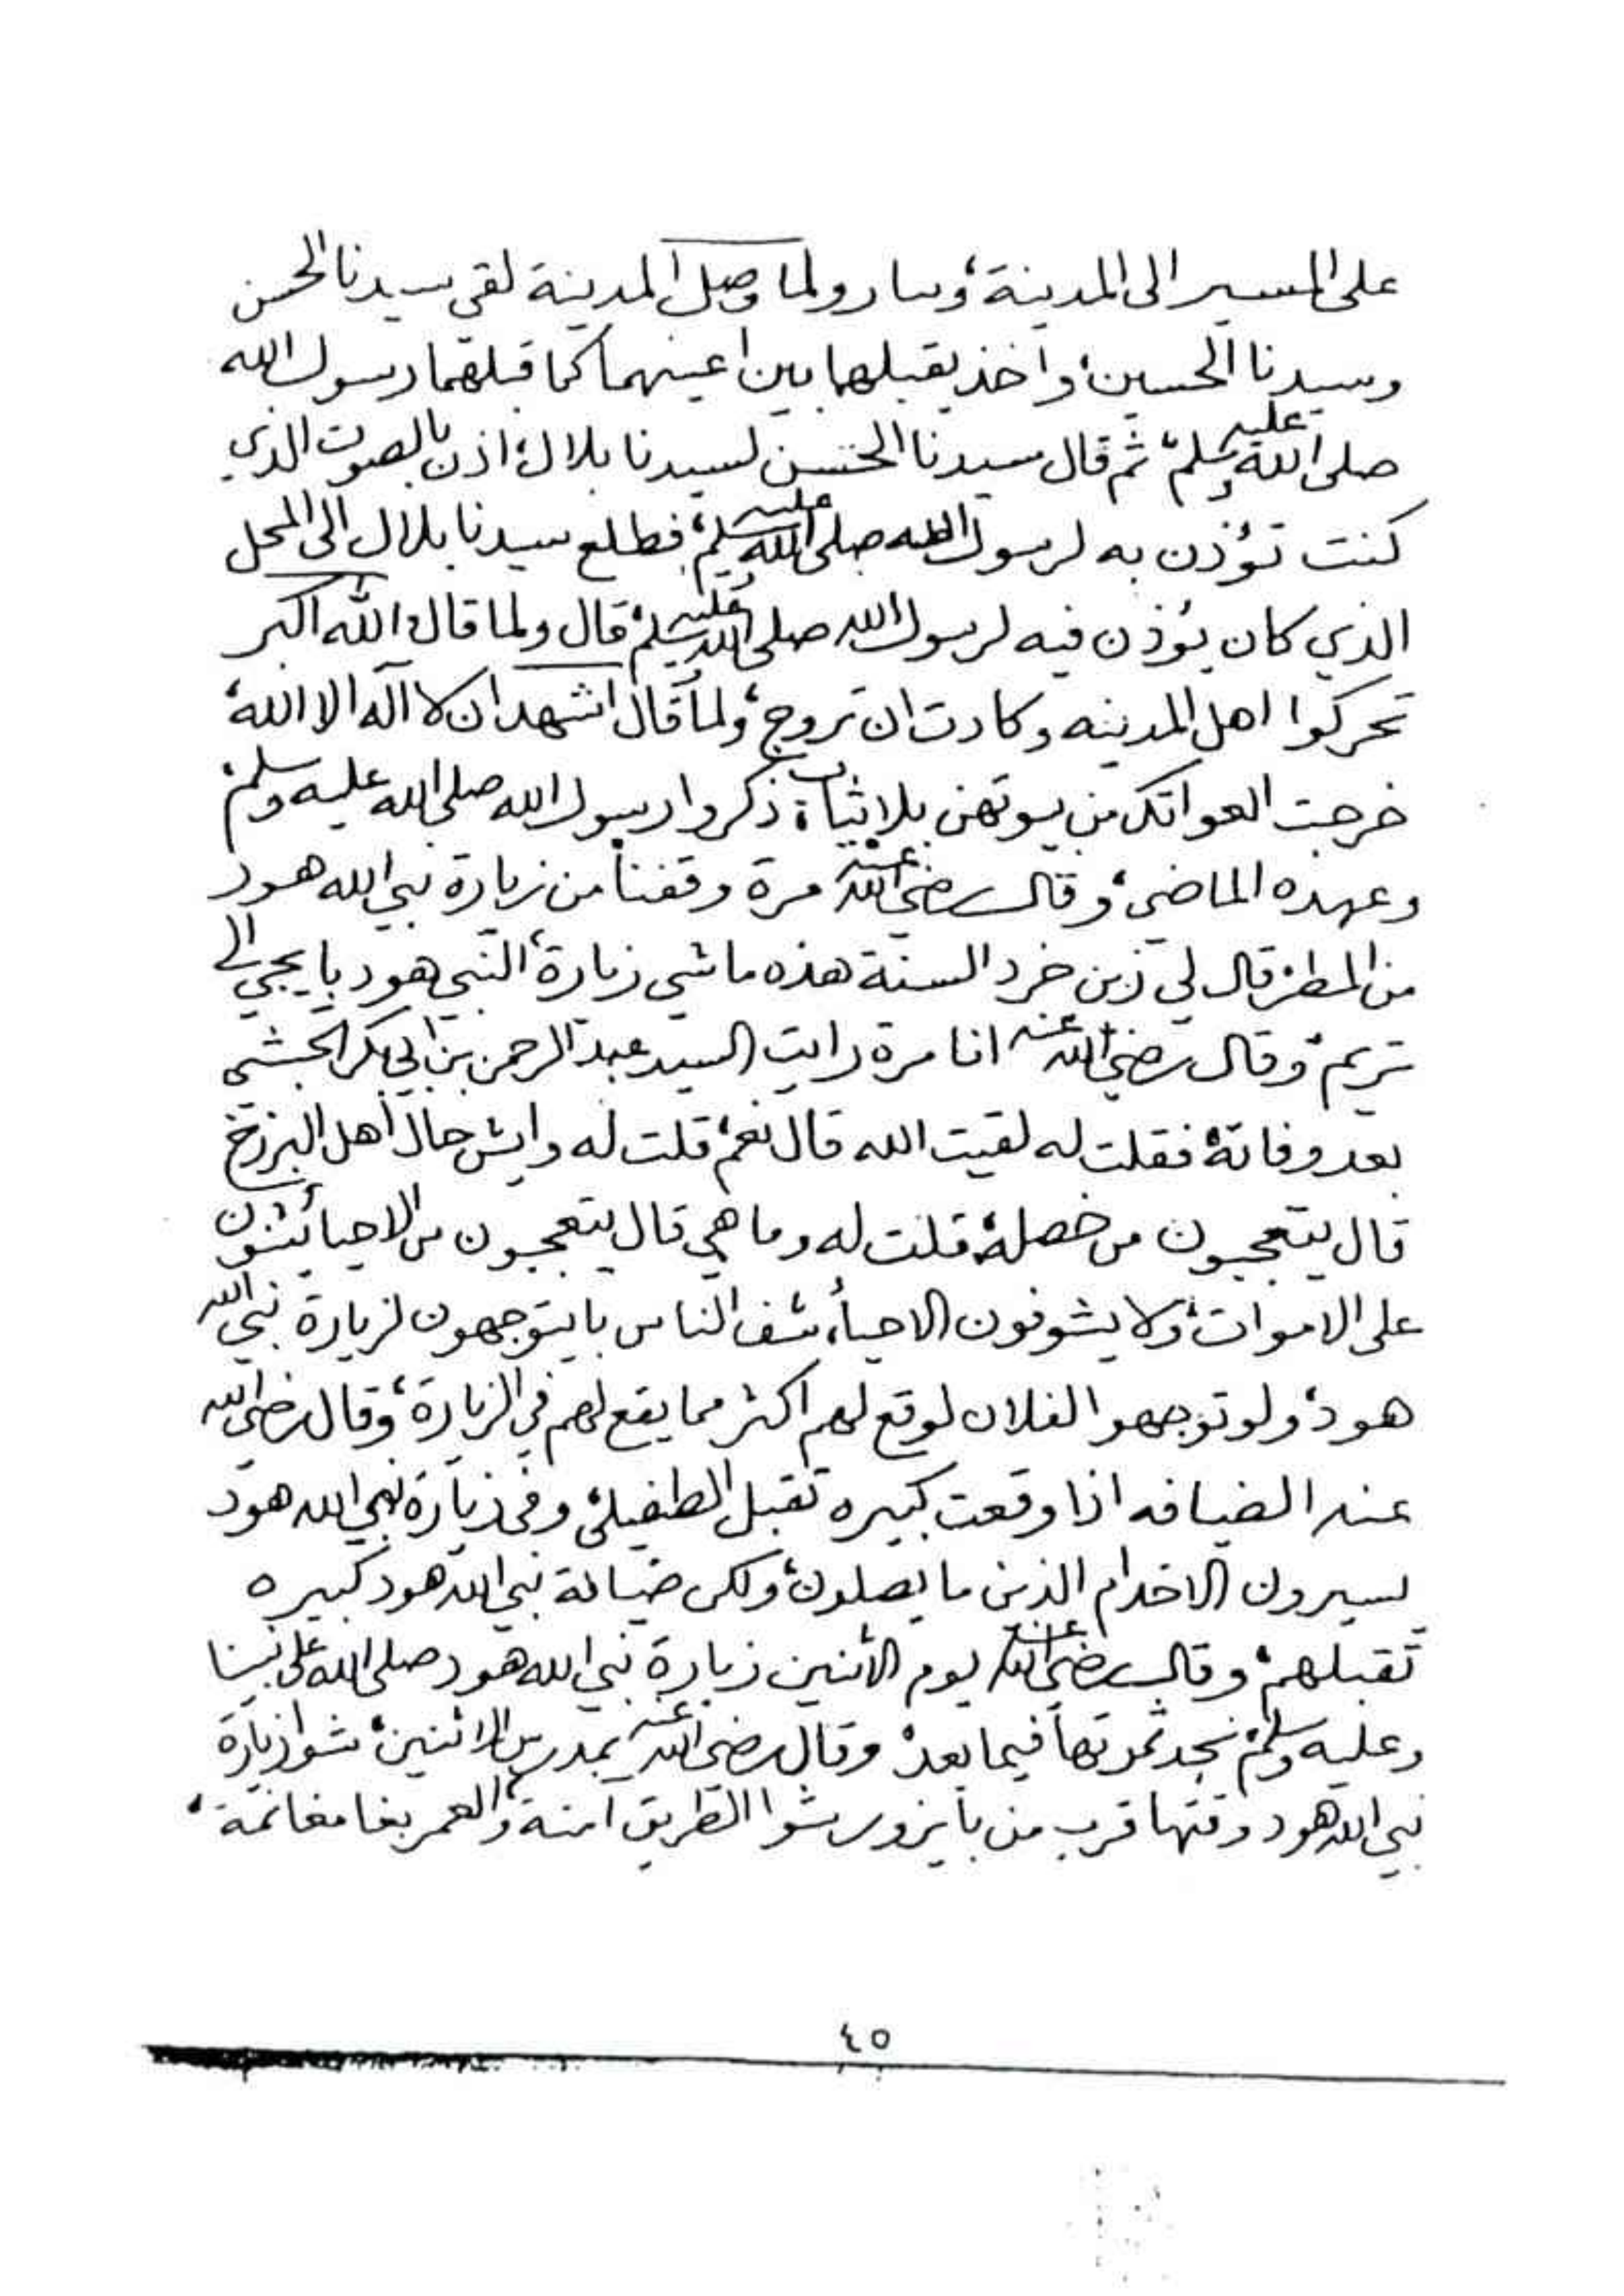 على المسير الى المدينة، وسار ولما وصل المدينة لقي سيدنا الحسن
وسيدنا الحسين، واخذ يقبلهما بين اعينهما كما قبلهما رسول الله
صلى الله عليه وسلم، ثم قال سيدنا الحسن لسيدنا بلال، اذن بالصوت الذي
كنت تؤذن به لرسول الله صلى الله عليه وسلم، فطلع سيدنا بلال الى المحل
الذي كان يؤذن فيه لرسول الله صلى الله عليه وسلم، قال ولما قال الله اكبر
تحركوا اهل المدينه وكادت ان تروج، ولما قال اشهد ان لا آله الا الله،
خرجت العواتك من بيوتهن بلا ثياب، ذكروا رسول الله صلى الله عليه وسلم،
وعهده الماضي، وقال رضي الله عنه مرة وقفنا من زيارة نبي الله هود
من المطر، قال لي زين خرد السنة هذه ماشي زيارة، النبي هود با يجي الى
تريم، وقال رضي الله عنه انا مرة رايت السيد عبد الرحمن بن ابي بكر الحبشي
بعد وفاته، فقلت له لقيت الله قال نعم، قلت له وايش حال أهل البرزخ
قال يتعجبون من خصلة، قلت له وما هي قال يتعجبون من الاحيا يثنون
على الاموات، ولا يشوفون الاحيأ، شف الناس با يتوجهون لزيارة نبي الله
هود، ولو توجهوا لفلان لوقع لهم اكثر مما يقع لهم في الزيارة، وقال رضي الله
عنه الضيافه اذا وقعت كبيره تقبل الطفيلي، وفي زيارة نبي الله هود
يسيرون الاخدام الذين ما يصلون، ولكن ضيافة نبي الله هود كبيره
تقبلهم، وقال رضي الله عنه يوم الأثنين زيارة نبي الله هود صلى الله على نبينا
وعليه وسلم، نجد ثمرتها فيما بعد، وقال رضي الله عنه بمدرس الاثنين، شوا زيارة
نبي الله هود وقتها قرب من با يزور شوا الطريق امنة، والعمر بغا مغانمة،
٤٥